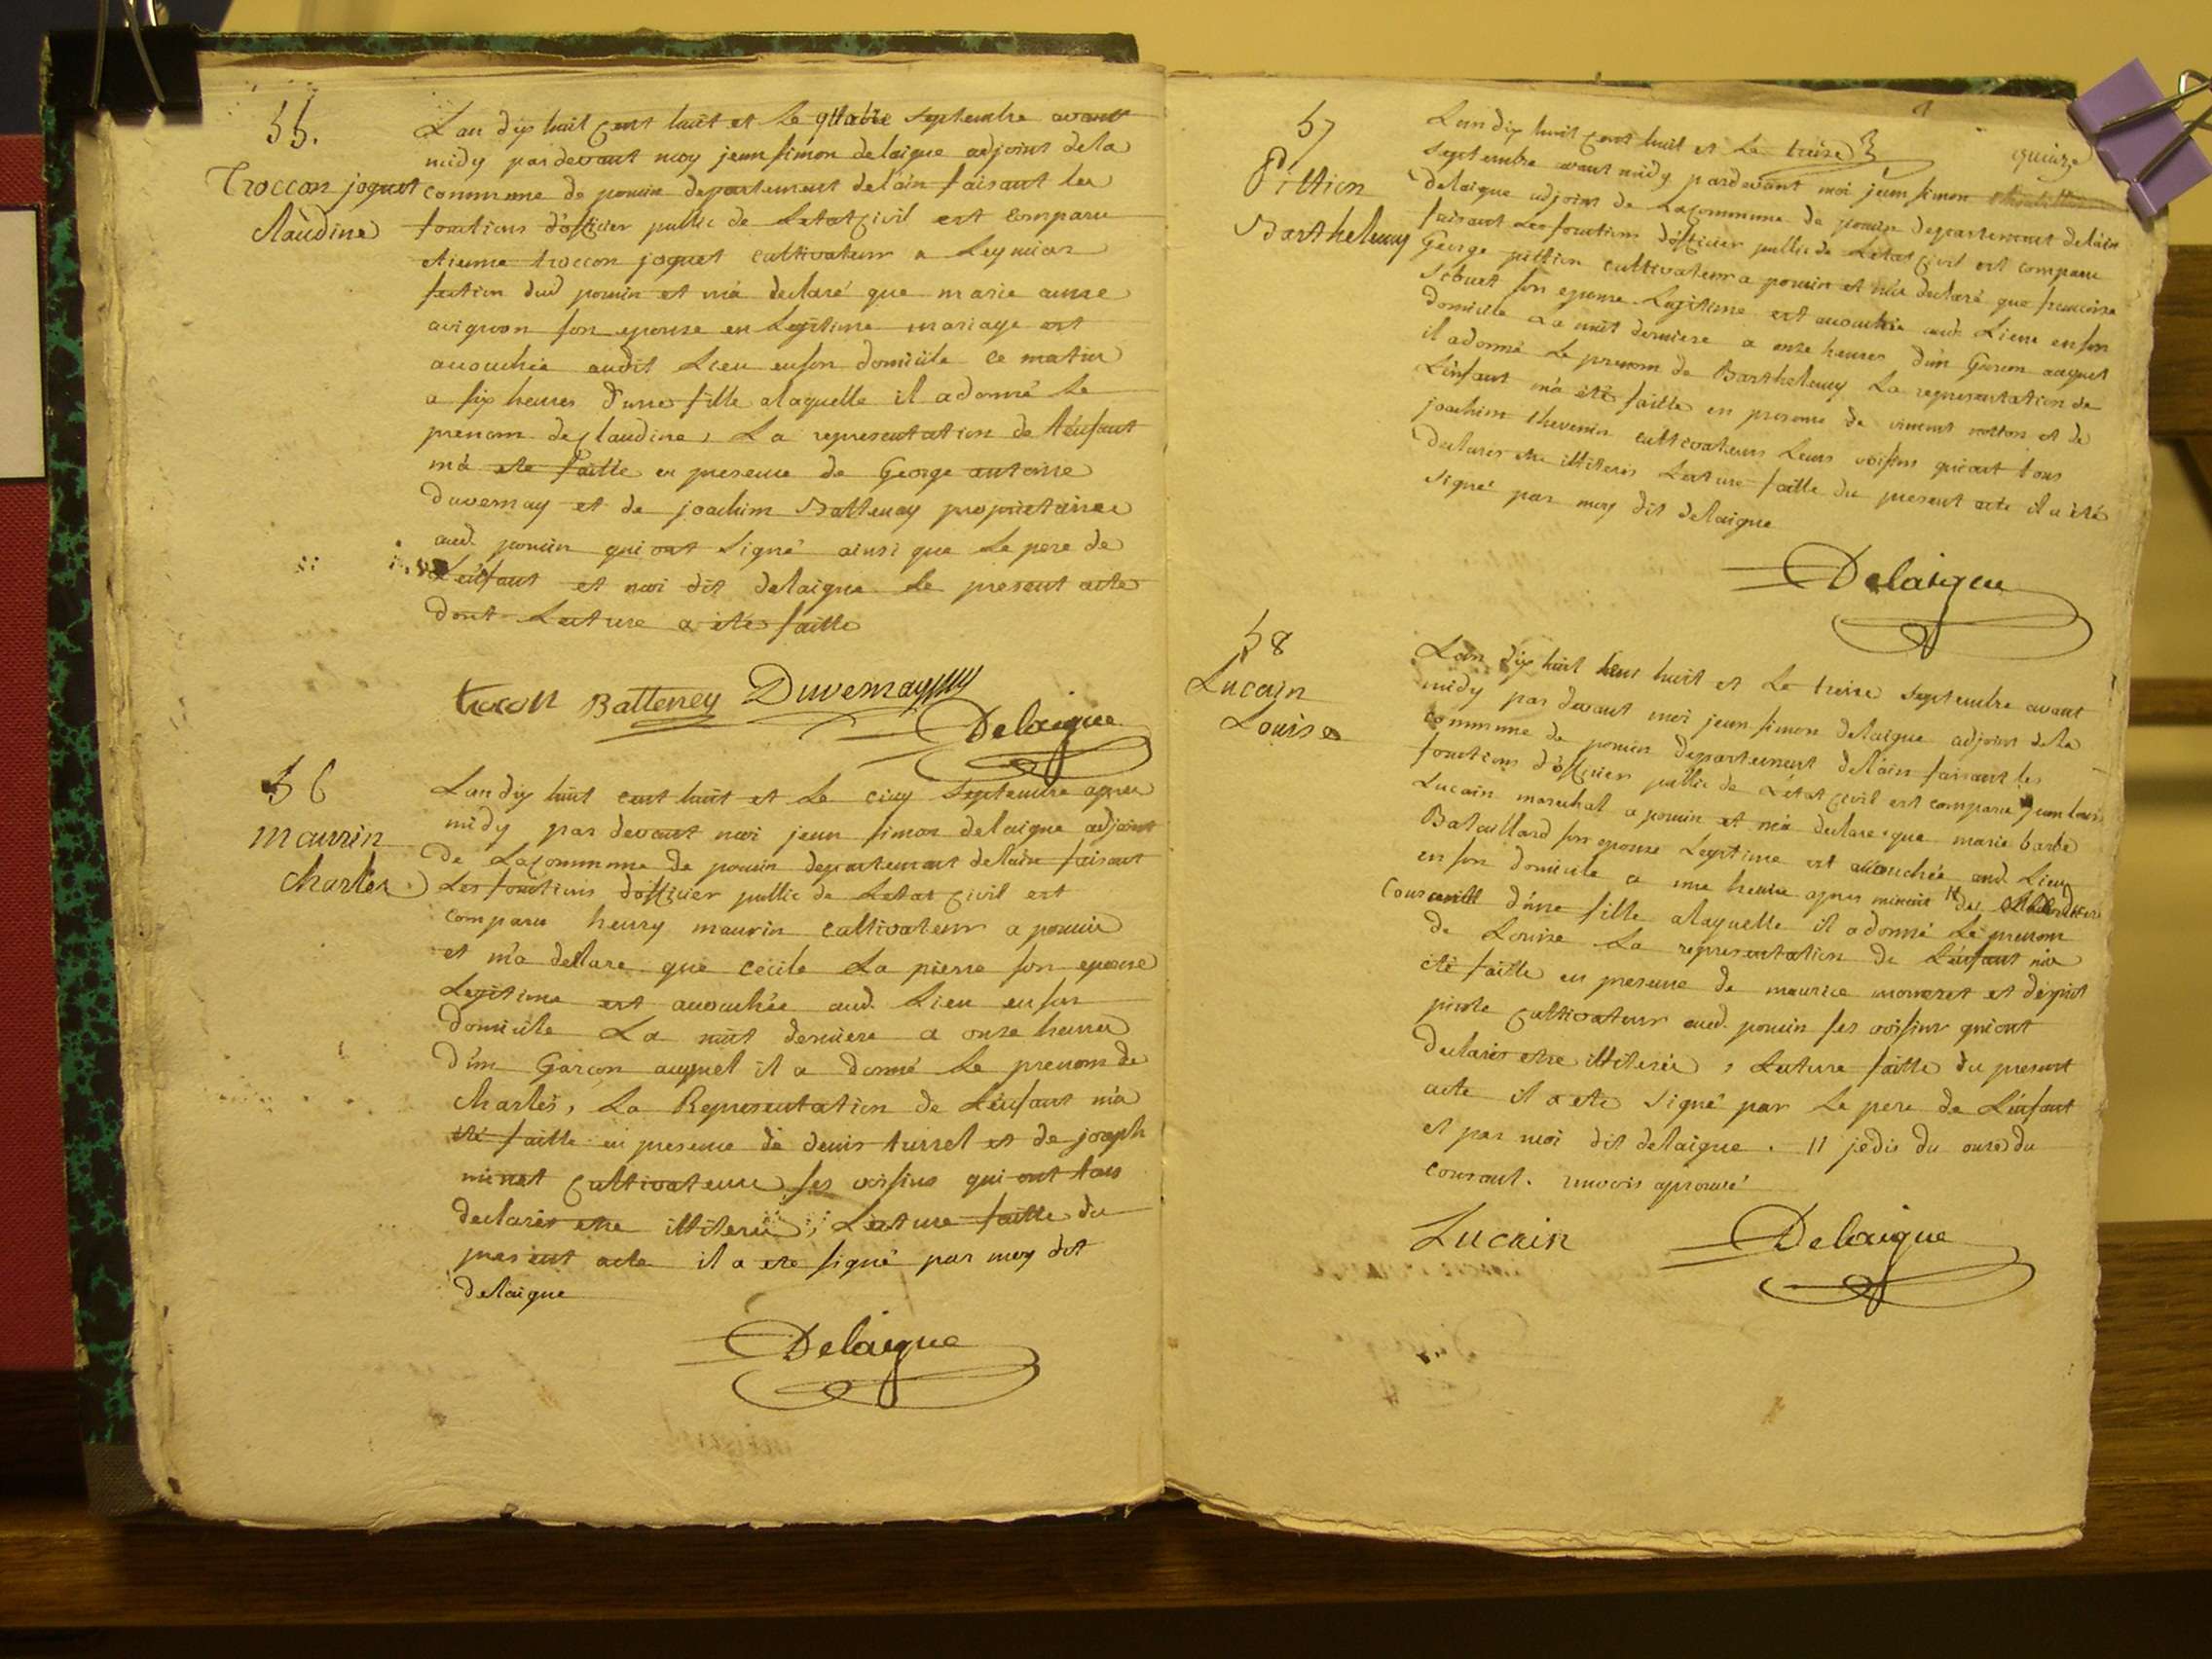 55.
Troccon joquet
Claudine
L'an dix huit cent huit et le quatre septembre avant
midy par devant moy jean simon delaigue adjoint de la
commune de poncin departement de l'ain faisant les
fonctions d'officier public de l'etat civil est comparu
etienne troccon joquet cultivateur a Leymiar
section dud poncin et m'a declaré que marie anne
avignon son epouse en Legitime mariage est
accouchée audit Lieu en son domicile ce matin
a six heures d'une fille a laquelle il a donné le
prenom de Claudine, La representation de l'enfant
m'a ete faitte en presence de George antoine
Duvernay et de joachim Batteney proprietaires
aud. poncin qui ont signé ainsi que le pere de
L'enfant et moi dit delaigue le present acte
dont Lecture a eté faitte
trocon Batteney Duvernay
Delaigue
56
maurin
Charles
L'an dix huit cent huit et le cinq septembre apres
midy par devant moi jean simon delaigue adjoint
de La commune de poncin departement de l'ain faisant
Les fonctions d'officier public de L'etat civil est
comparu henry maurin cultivateur a poncin
et m'a declare que cecile La pierre son epouse
Legitime est accouchée aud. Lieu en son
domicile La nuit derniere a onze heures
d'un Garçon auquel il a donné le prenom de
Charles, La Representation de L'enfant m'a
eté faitte en presence de denis turrel et de joseph
minet cultivateurs ses voisins qui ont tous
declarés etre illiterés, Lecture faitte du
present acte il a ete signé par moy dit
delaigue
Delaigue
quinze
57
Pittion
Barthelemy
L'an dix huit cent huit et Le treize
septembre avant midy pardevant moi jean simon
delaigue adjoint de La commune de poncin departement de l'ain
faisant Les fonctions d'officier public de L'etat civil est comparu
George pittion cultivateur a poncin et m'a declaré que francoise
son epouse Legitime est accouchée aud. Lieu en son
domicile La nuit derniere a onze heures d'un Garcon auquel
il a donné le prenom de Barthelemy La representation de
L'enfant m'a eté faitte en presence de vincent et de
joachim thevenin cultivateurs Leurs voisins qui ont tous
declarés etre illiterés Lecture faitte du present acte il a été
signé par moy dit delaigue
Delaigue
58
Lucain
Louise
L'an dix huit cent huit et Le treize septembre avant
midy par devant moi jean simon delaigue adjoint de la
commune de poncin departement de l'ain faisant les
fonctions d'officier public de L'etat civil est comparu jean Louis
Lucain marechal a poncin et m'a declare que marie barbe
Bataillard son epouse Legitime est accouchée aud. Lieu
en son domicile a une heure apres minuit 11 du
Courant d'une fille a laquelle il a donné Le prenom
de Louise La representation de L'enfant m'a
eté faitte en presence de maurice et
cultivateurs aud. poncin ses voisins qui ont
declarés etre illiterés, Lecture faitte du present
acte il a ete signé par Le pere de L'enfant
et par moi dit delaigue. 11 je dis du onze du
courant. renvois aprouvé
Lucain Delaigue